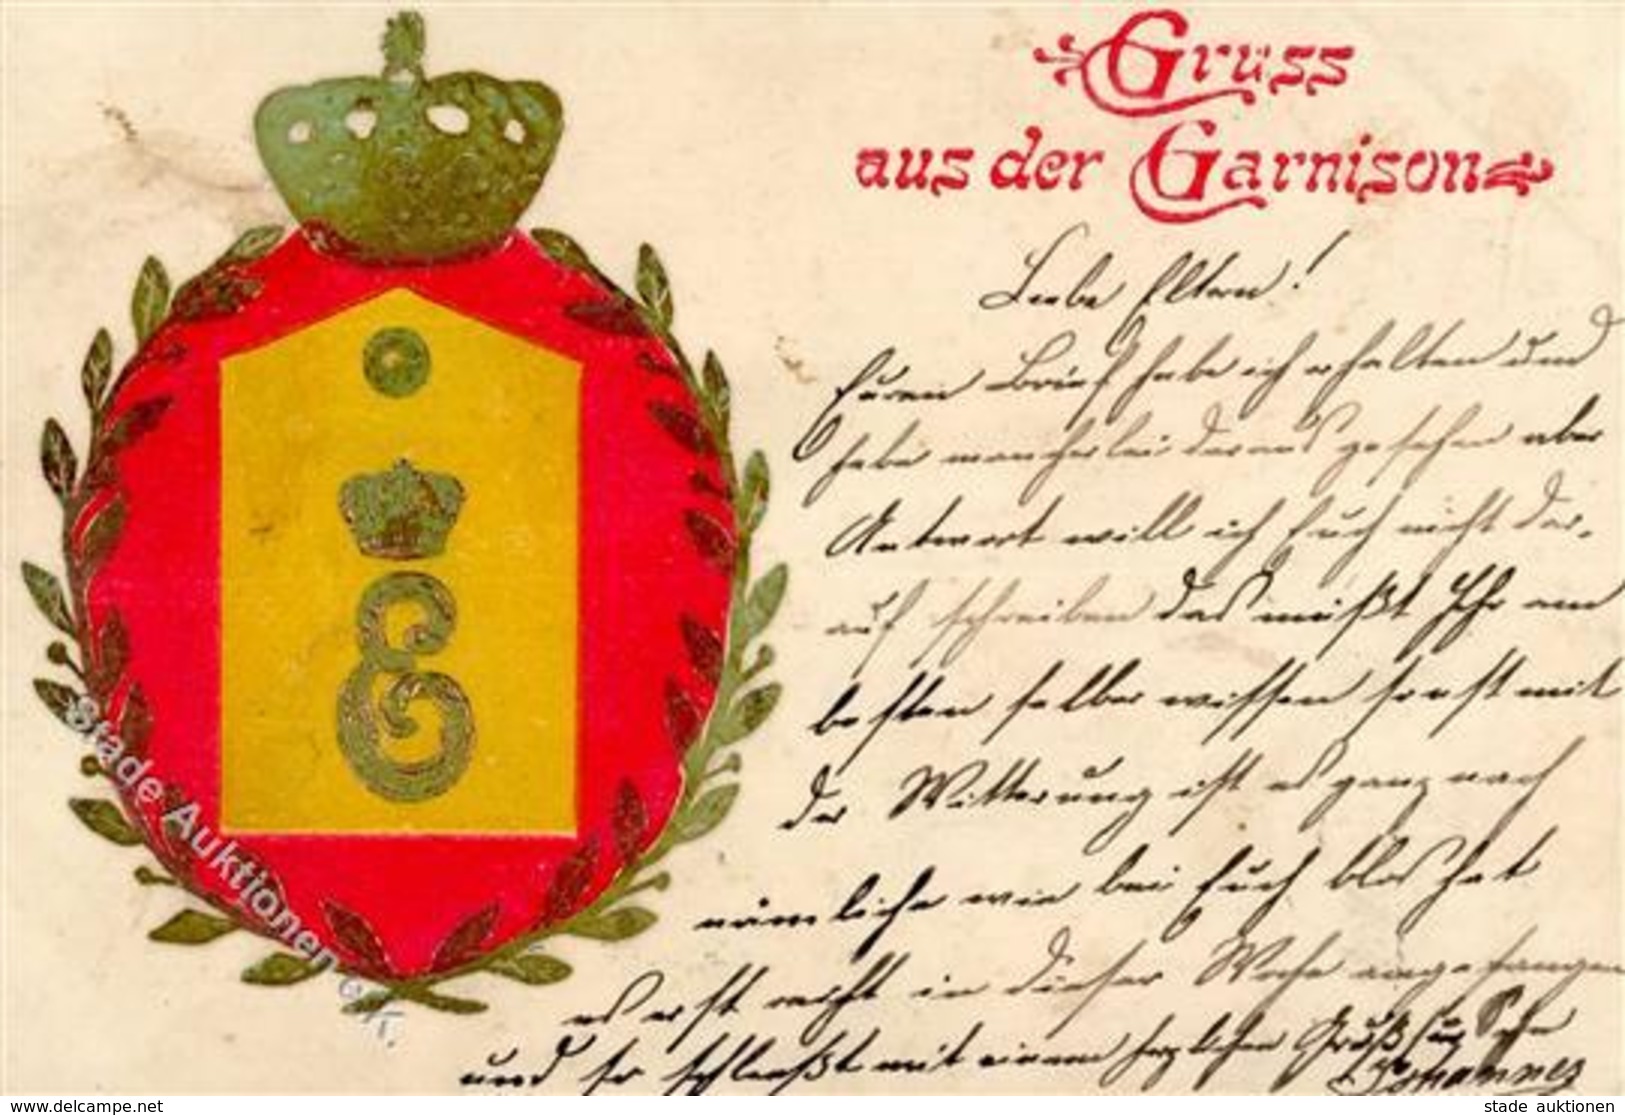 Gruss
aus der Garnison
Liebe Eltern!
Euren Brief habe ich erhalten und
habe mancherlei daraus gesehen aber
Antwort will ich Euch nicht dar-
auf schreiben das müßt Ihr am
besten selber wissen sonst mit
der Witterung ist es ganz nach
nämliche wie bei Euch blos hat
es erst recht in dieser Woche angefangen
und so schließt mit einem herzlichen Gruß Eur Sohn
Johannes
E
Stade Auktionen
www.delcampe.net
stade auktionen